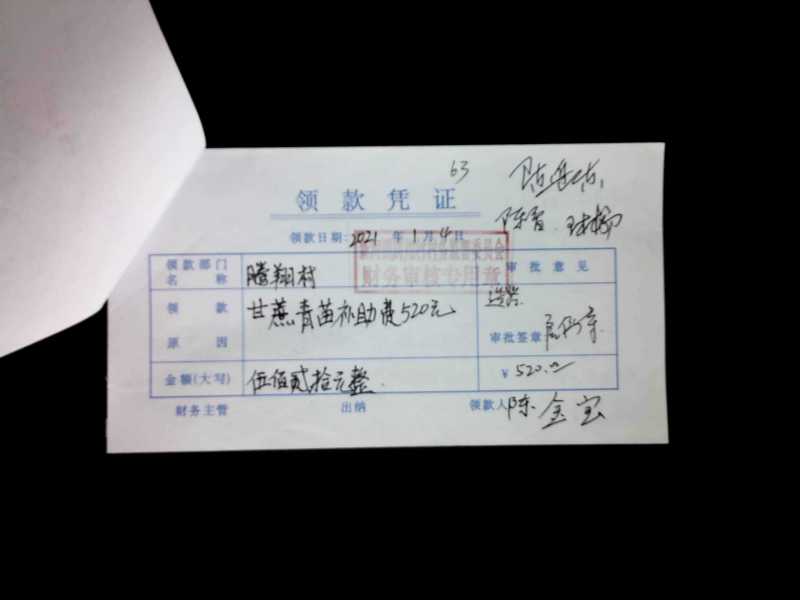 63
领款凭证
陈香
领款日期: 2021 年 1 月 4 日
财务审核专用章
领款部门名称 腾翔村
审批意见
领款原因 甘蔗青苗补助费520元
审批签章:
金额(大写) 伍佰贰拾元整
¥ 520.00
财务主管 出纳 领款人 陈金宝